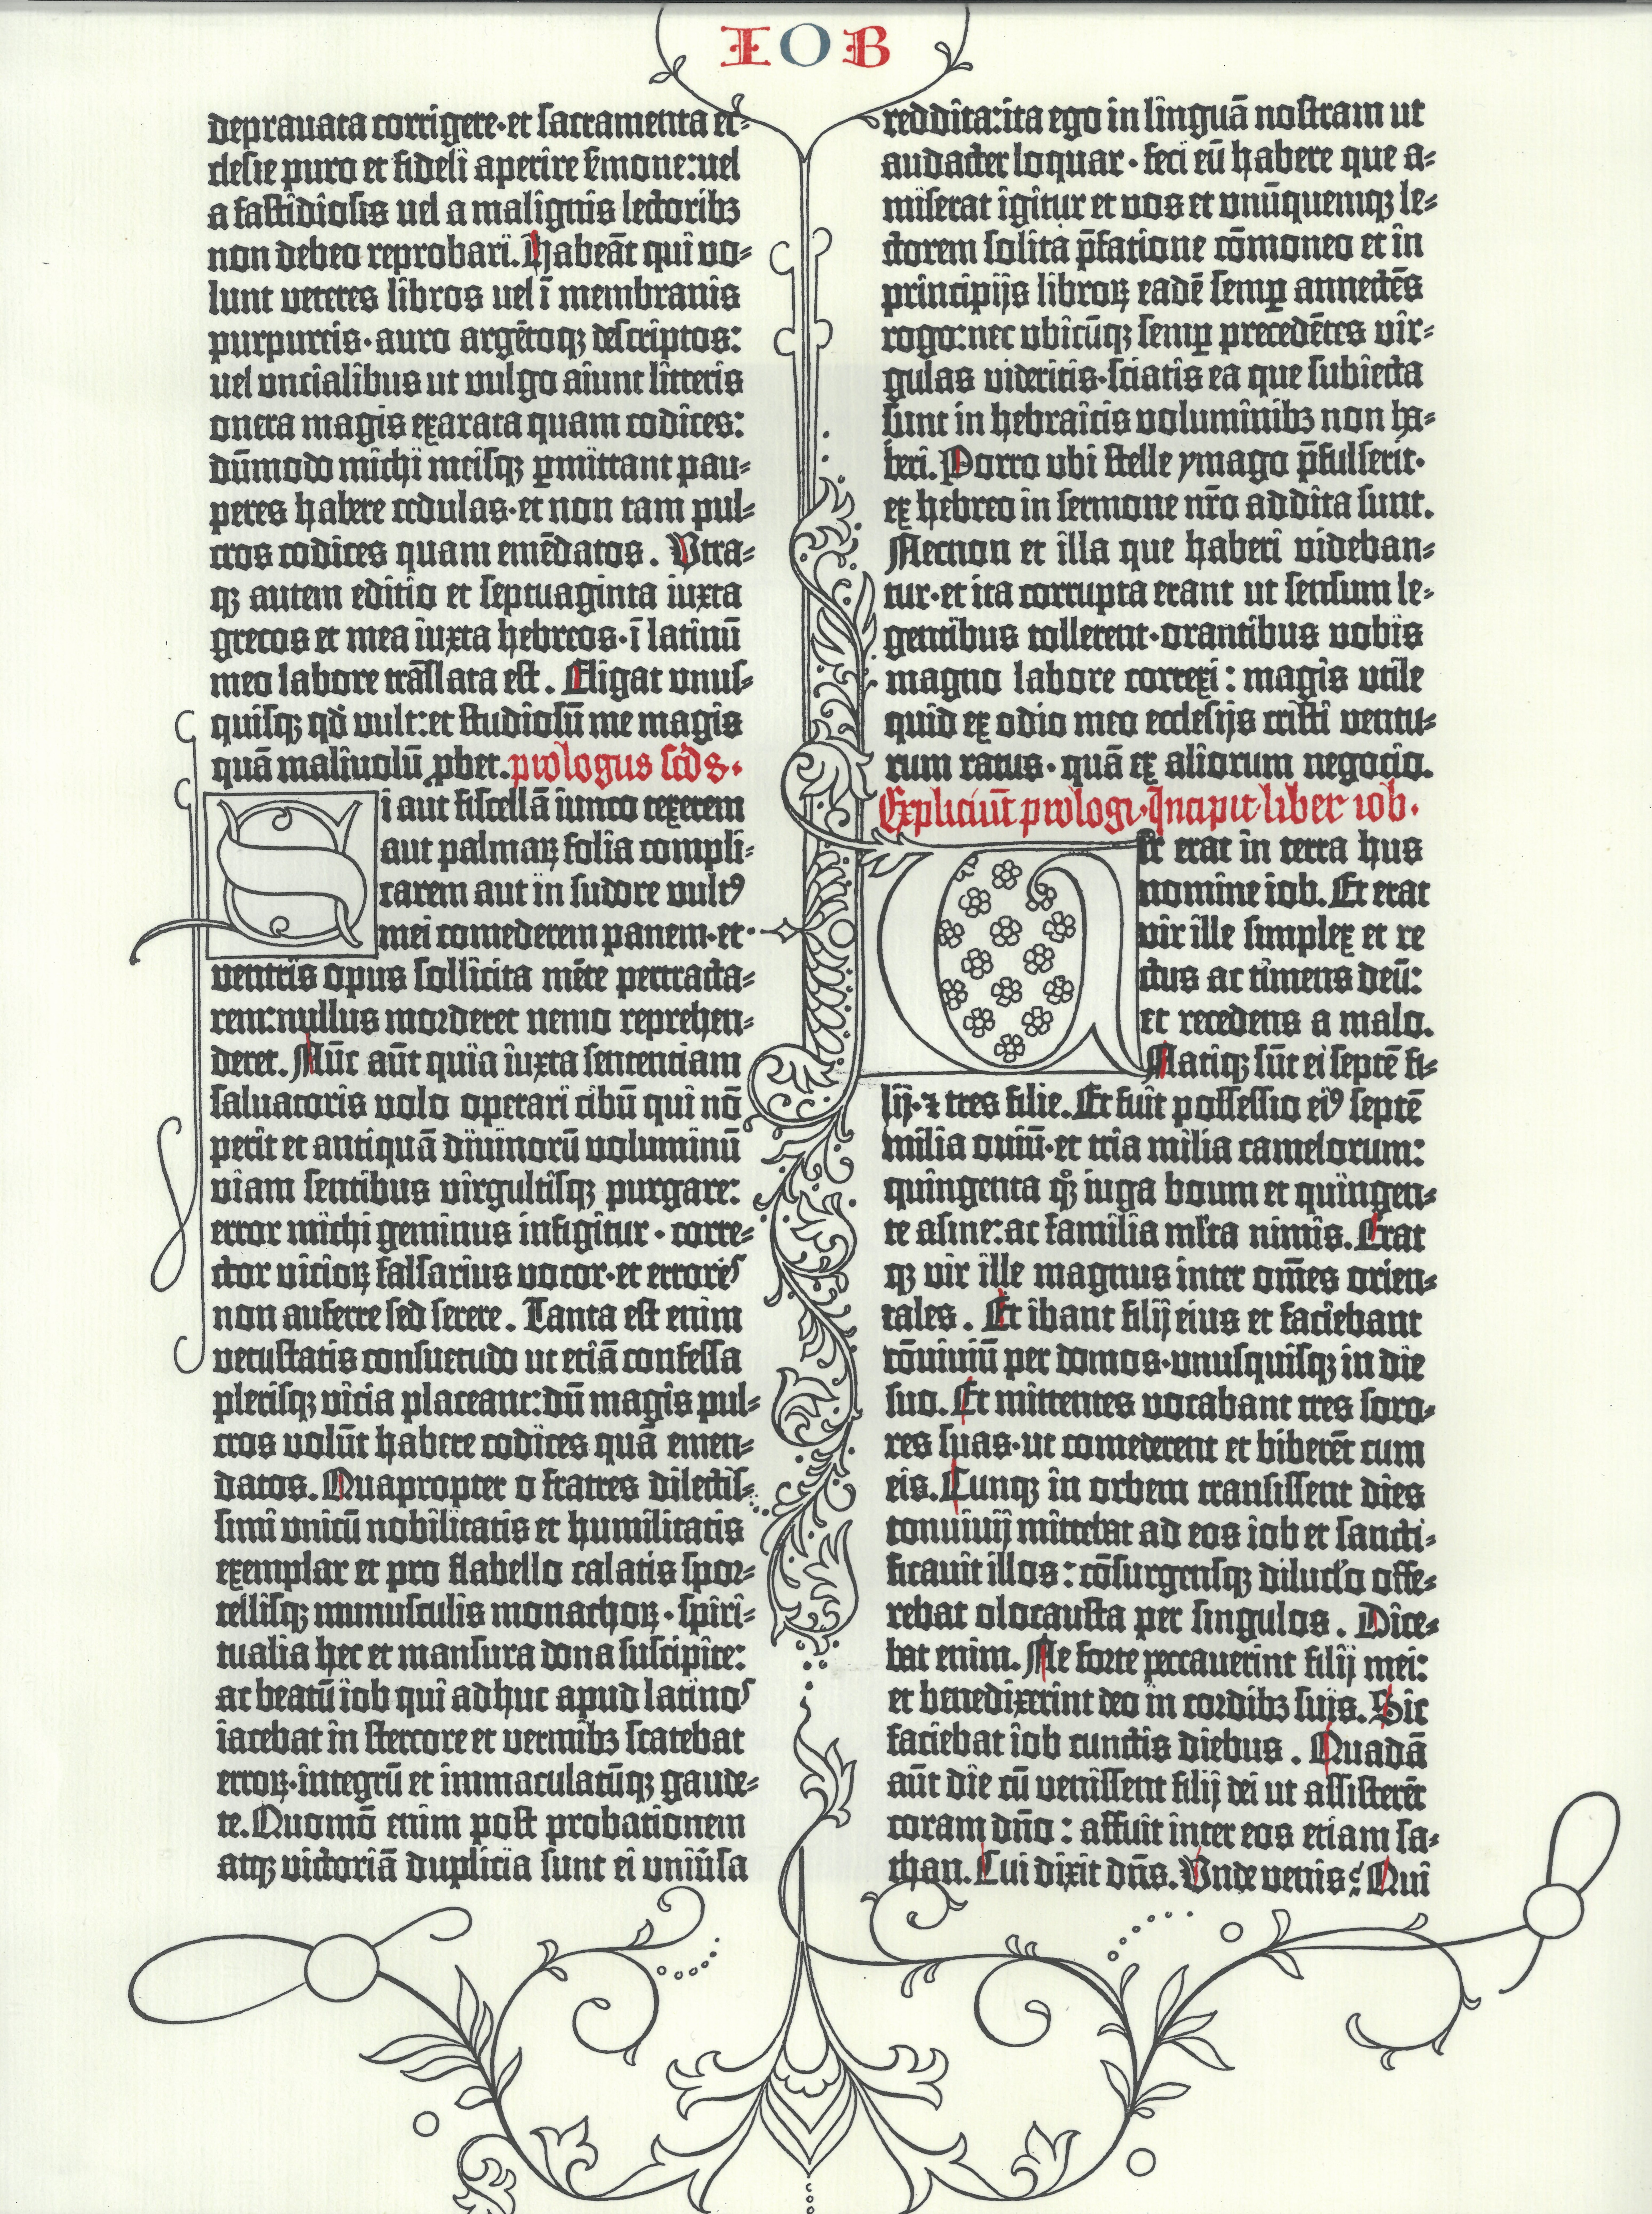 IOB
deprauata corrigere·et sacramenta ec-
clesie puro et fideli aperire s̄mone:uel
a fastidiosis uel a malignis lectoribꝫ
non debeo reprobari. Habeāt qui vo-
lunt veteres libros uel ī membranis
purpureis·auro argētoqꝫ descriptos:
uel vncialibus ut vulgo aiunt litteris
onera magis exarata quam codices:
dūmodo michi meisqꝫ ꝑmittant pau-
peres habere cedulas·et non tam pul-
cros codices quam emēdatos. Vtra-
qꝫ autem editio et septuaginta iuxta
grecos et mea iuxta hebreos·ī latinū
meo labore trāslata est. Eligat vnus-
quisqꝫ qđ vult:et studiosū me magis
quā maliuolū ꝓbet. prologus scd̄s.
Si aut fiscellā iunco texerem
aut palmaꝝ folia compli-
carem aut in sudore vultꝰ
mei comederem panem·et
ventris opus sollicita mēte pertracta-
rem:nullus morderet nemo reprehen-
deret. Nūc aūt quia iuxta sententiam
saluatoris volo operari cibū qui nō
perit et antiquā diuinorū voluminū
viam sentibus virgultisqꝫ purgare:
error michi geminus infigitur·corre-
ctor vicioꝝ falsarius vocor·et errores
non auferre sed serere. Tanta est enim
vetustatis consuetudo ut etiā confessa
plerisqꝫ vicia placeant:dū magis pul-
cros volūt habere codices quā emen-
datos. Quapropter o fratres dilectis-
simi vnicū nobilitatis et humilitatis
exemplar et pro flabello calatis spor-
tellisqꝫ munusculis monachoꝝ·spiri-
tualia hec et mansura dona suscipite:
ac beatū iob qui adhuc apud latinos
iacebat in stercore et vermibꝫ scatebat
erroꝝ·integrū et immaculatūqꝫ gaude-
te. Quomō enim post probationem
atqꝫ victoriā duplicia sunt ei vniūsa
reddita:ita ego in linguā nostram ut
audacter loquar·feci eū habere que a-
miserat igitur et vos et vnūquemqꝫ le-
ctorem solita p̄fatione cōmoneo et in
principijs libroꝝ eadē semꝑ annectēs
rogo:nec vbicūqꝫ semꝑ precedētes vir-
gulas videritis·sciatis ea que subiecta
sunt in hebraicis voluminibꝫ non ha-
beri. Porro vbi stelle ymago p̄fulserit·
ex hebreo in sermone nr̄o addita sunt.
Necnon et illa que haberi videban-
tur·et ita corrupta erant ut sensum le-
gentibus tollerent·orantibus vobis
magno labore correxi: magis vtile
quid ex odio meo ecclesijs cristi ventu-
rum ratus·quā ex aliorum negocio.
Expliciūt prologi·Incipit liber iob.
Vir erat in terra hus
nomine iob. Et erat
vir ille simplex et re
ctus ac timens deū:
et recedens a malo.
Natiqꝫ sūt ei septē fi-
lij·⁊ tres filie. Et fuit possessio eiꝰ septē
milia ouiū·et tria milia camelorum:
quingenta qͦꝫ iuga boum et quingen-
te asine:ac familia ml̄ta nimis. Erat
qꝫ vir ille magnus inter om̄es orien-
tales. Et ibant filij eius et faciebant
cōuiuiū per domos·vnusquisqꝫ in die
suo. Et mittentes vocabant tres soro-
res suas·ut comederent et biberēt cum
eis. Cunqꝫ in orbem transissent dies
conuiuij mittebat ad eos iob et sancti-
ficauit illos: cōsurgensqꝫ dilucl̄o offe-
rebat olocausta per singulos. Dice-
bat enim. Ne forte peccauerint filij mei:
et benedixerint deo in cordibꝫ suis. Sic
faciebat iob cunctis diebus. Quadā
aūt die cū venissent filij dei ut assisterēt
coram dn̄o: affuit inter eos etiam sa-
than. Cui dixit dn̄s. Vnde venis? Qui